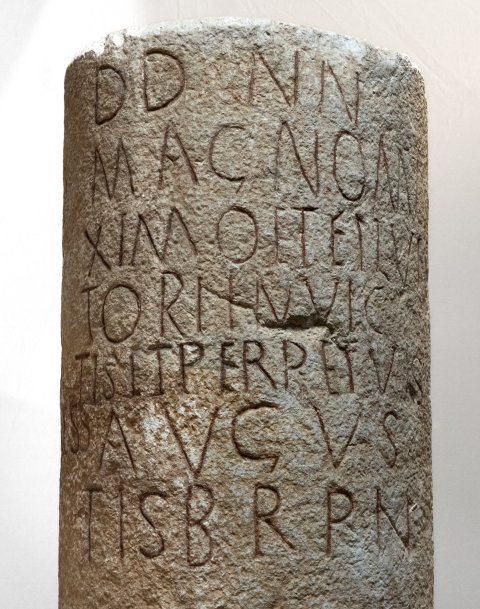 DD NN
MAGNOM
XIMOET
TORIINVIC
TISETPERPETVS
SAVGVS
TISBRPN